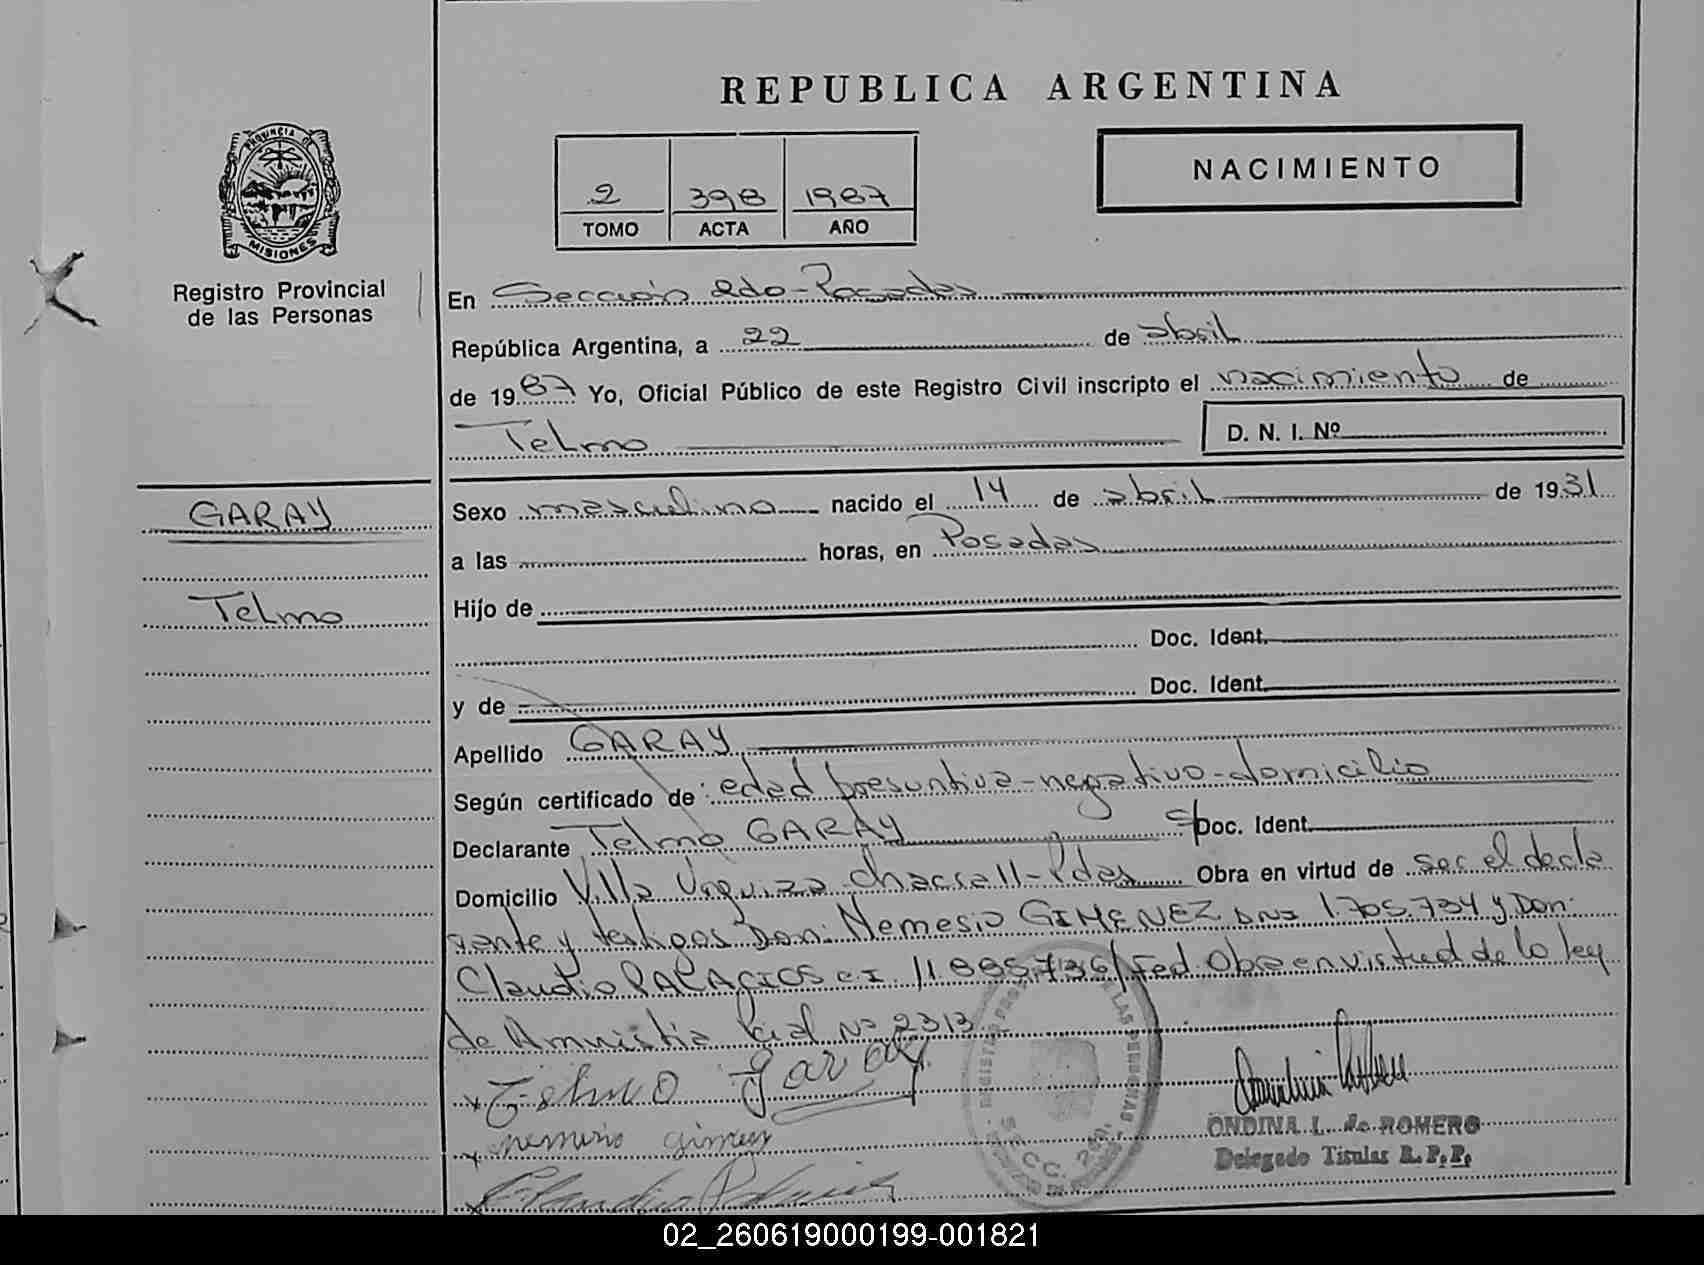 REPUBLICA ARGENTINA
PROVINCIA DE
MISIONES
Registro Provincial
de las Personas
2 398 1987
TOMO ACTA AÑO
NACIMIENTO
En Sección 2do - Posadas
República Argentina, a 22 de abril
de 1987 Yo, Oficial Público de este Registro Civil inscripto el nacimiento de
Telmo D. N. I. Nº
GARAY
Telmo
Sexo masculino nacido el 14 de abril de 1931
a las horas, en Posadas
Hijo de
Doc. Ident.
y de Doc. Ident.
Apellido GARAY
Según certificado de: edad presuntiva-negativo-domicilio
Declarante Telmo GARAY Doc. Ident.
Domicilio Villa Urquiza chacra 11-Pdas Obra en virtud de ser el decla
rante y testigos Don: Nemesio GIMENEZ DNI 1.705.734 y Don:
Claudio PALACIOS C.I. Fed. Obra en virtud de lo ley
de Amnistia Nº 2313
x Telmo Garay
x nemesio gimenez
x Claudio Palacios
SECC. 2da.
ONDINA L. de ROMERO
Delegado Titular R. P. P.
02_260619000199-001821